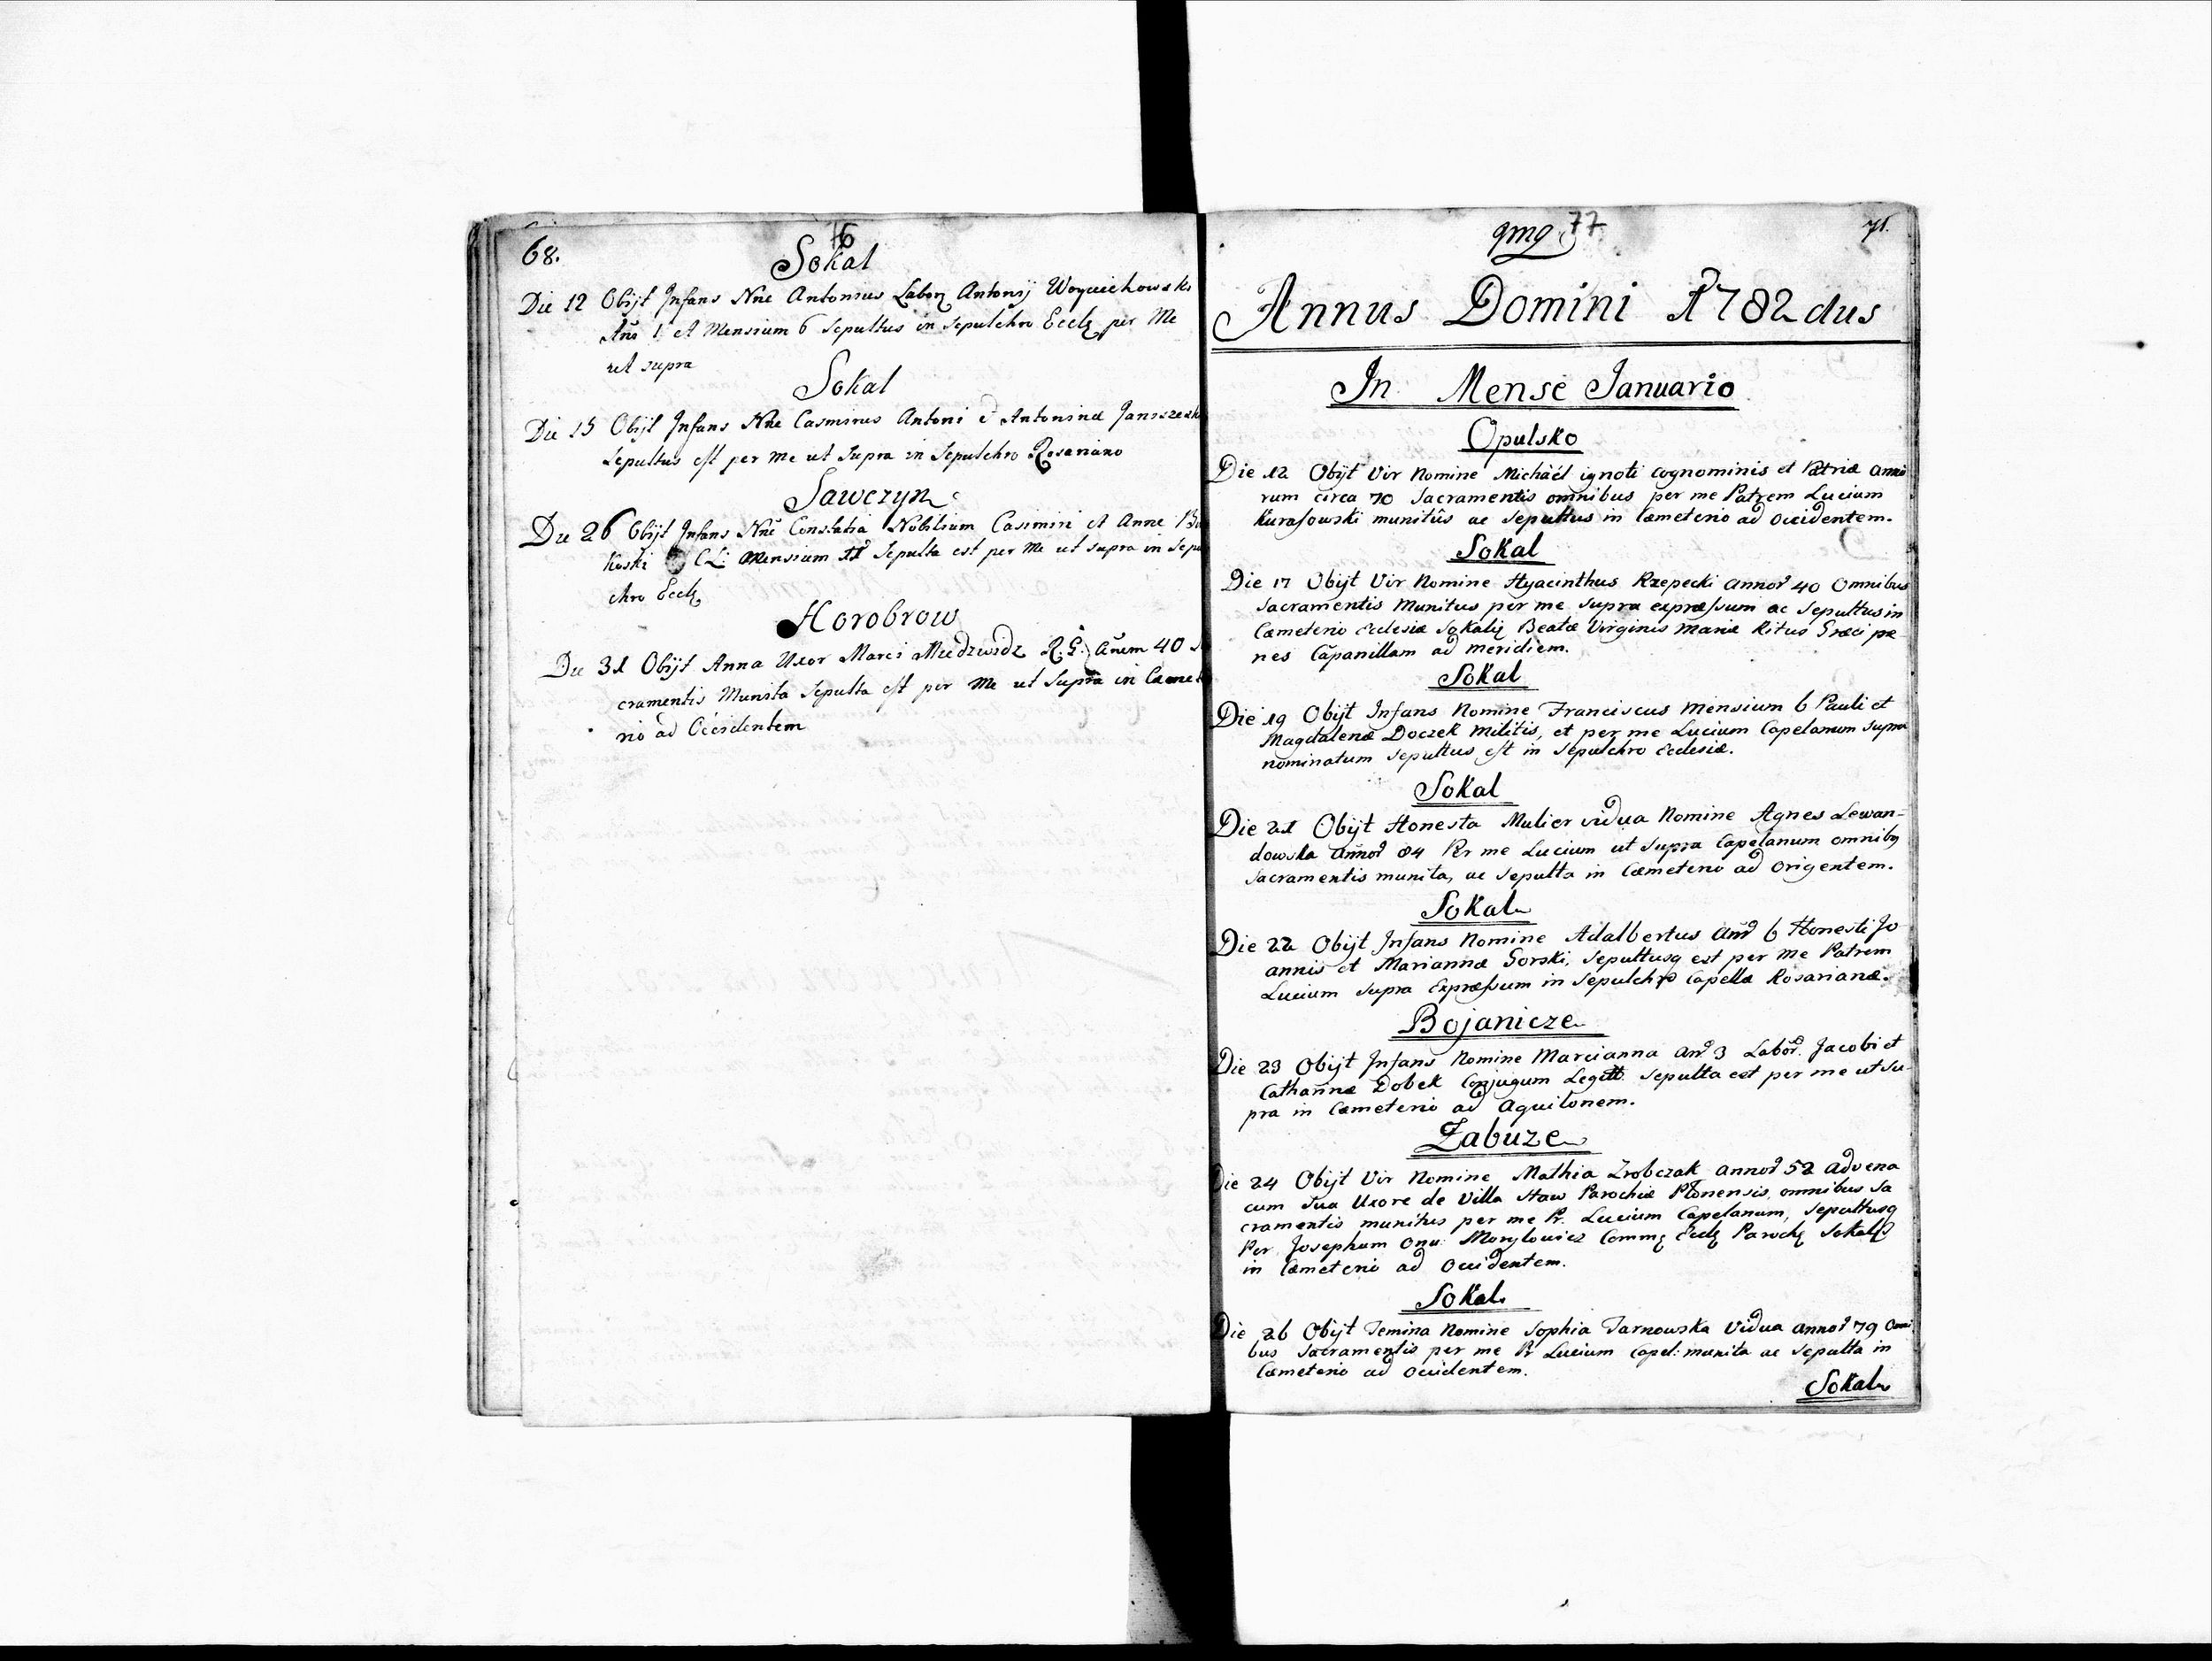 68.
76
Sokal
Die 12 Obijt Infans Nne Antonius Labor Antonij Woyciechowski
Ani 1 et Mensium 6 Sepultus in Sepulchro Eccle per Me
ut supra
Sokal
Die 15 Obijt Infans Nne Casmirus Antoni & Antoninæ
Sepultus est per me ut Supra in Sepulchro Rosariano
Sawczyn
Die 26 Obijt Infans Nne Constatia Nobilium Casimiri et Anne
koski CL: Mensium 11 Sepulta est per me ut supra in Sepu
chro Eccle
Horobrow
Die 31 Obijt Anna Uxor Marci Miedzwidz R: G: Anum 40
cramentis Munita Sepulta est per Me ut Supra in Cæmet
rio ad Occidentem
77
71.
Annus Domini 1782dus
In Mense Ianuario
Opulsko
Die 12 Obijt Vir Nomine Michäel ignoti cognominis et Patriæ anno
rum circa 70 Sacramentis omnibus per me Patrem Lucium
Kurasowski munitûs ac Sepultus in Cæmeterio ad occidentem.
Sokal
Die 17 Obijt Vir Nomine Hyacinthus Rzepecki annor 40 Omnibus
Sacramentis Munitus per me Supra expræssum ac Sepultus in
Cæmeterio Ecclesiæ Sokalis Beatæ Virginis Mariæ Ritus Græci pe
nes Capanillam ad meridiem.
Sokal
Die 19 Obijt Infans Nomine Franciscus Mensium 6 Pauli et
Magdalenæ Doczek Militis, et per me Lucium Capelanum supra
nominatum Sepultus est in Sepulchro Ecclesiæ.
Sokal
Die 21 Obijt Honesta Mulier vidua Nomine Agnes Lewan-
dowska annor 84 Per me Lucium ut Supra Capelanum omnibq
Sacramentis munita, ac Sepulta in Cæmeterio ad Origentem.
Sokal
Die 22 Obijt Infans Nomine Adalbertus anor 6 Honesti Jo
annis et Mariannæ Gorski, Sepultusq est per me Patrem
Lucium Supra Expræssum in Sepulchro Capellæ Rosarianæ.
Bojanicze
Die 23 Obijt Infans Nomine Marcianna anor 3 Labor. Jacobi et
Catharinæ Dobek Conjugum Legitt. Sepulta est per me ut Su-
pra in Cæmeterio ad Aquilonem.
Zabuze
Die 24 Obijt Vir Nomine Mathia Zrobczak annor 52 advena
cum Sua Uxore de Villa Staw Parochiæ Plonensis, omnibus Sa
cramentis munitus per me Pr. Lucium Capelanum, Sepultusq
Per Josephum Onu: Morylowicz Comme Eccle Parochę Sokals
in Cæmeterio ad Occidentem.
Sokal
Die 26 Obijt Femina Nomine Sophia Tarnowska Vidua annor 79 Omni
bus Sacramentis per me Pr Lucium Capel: munita ac Sepulta in
Cæmeterio ad Occidentem.
Sokal